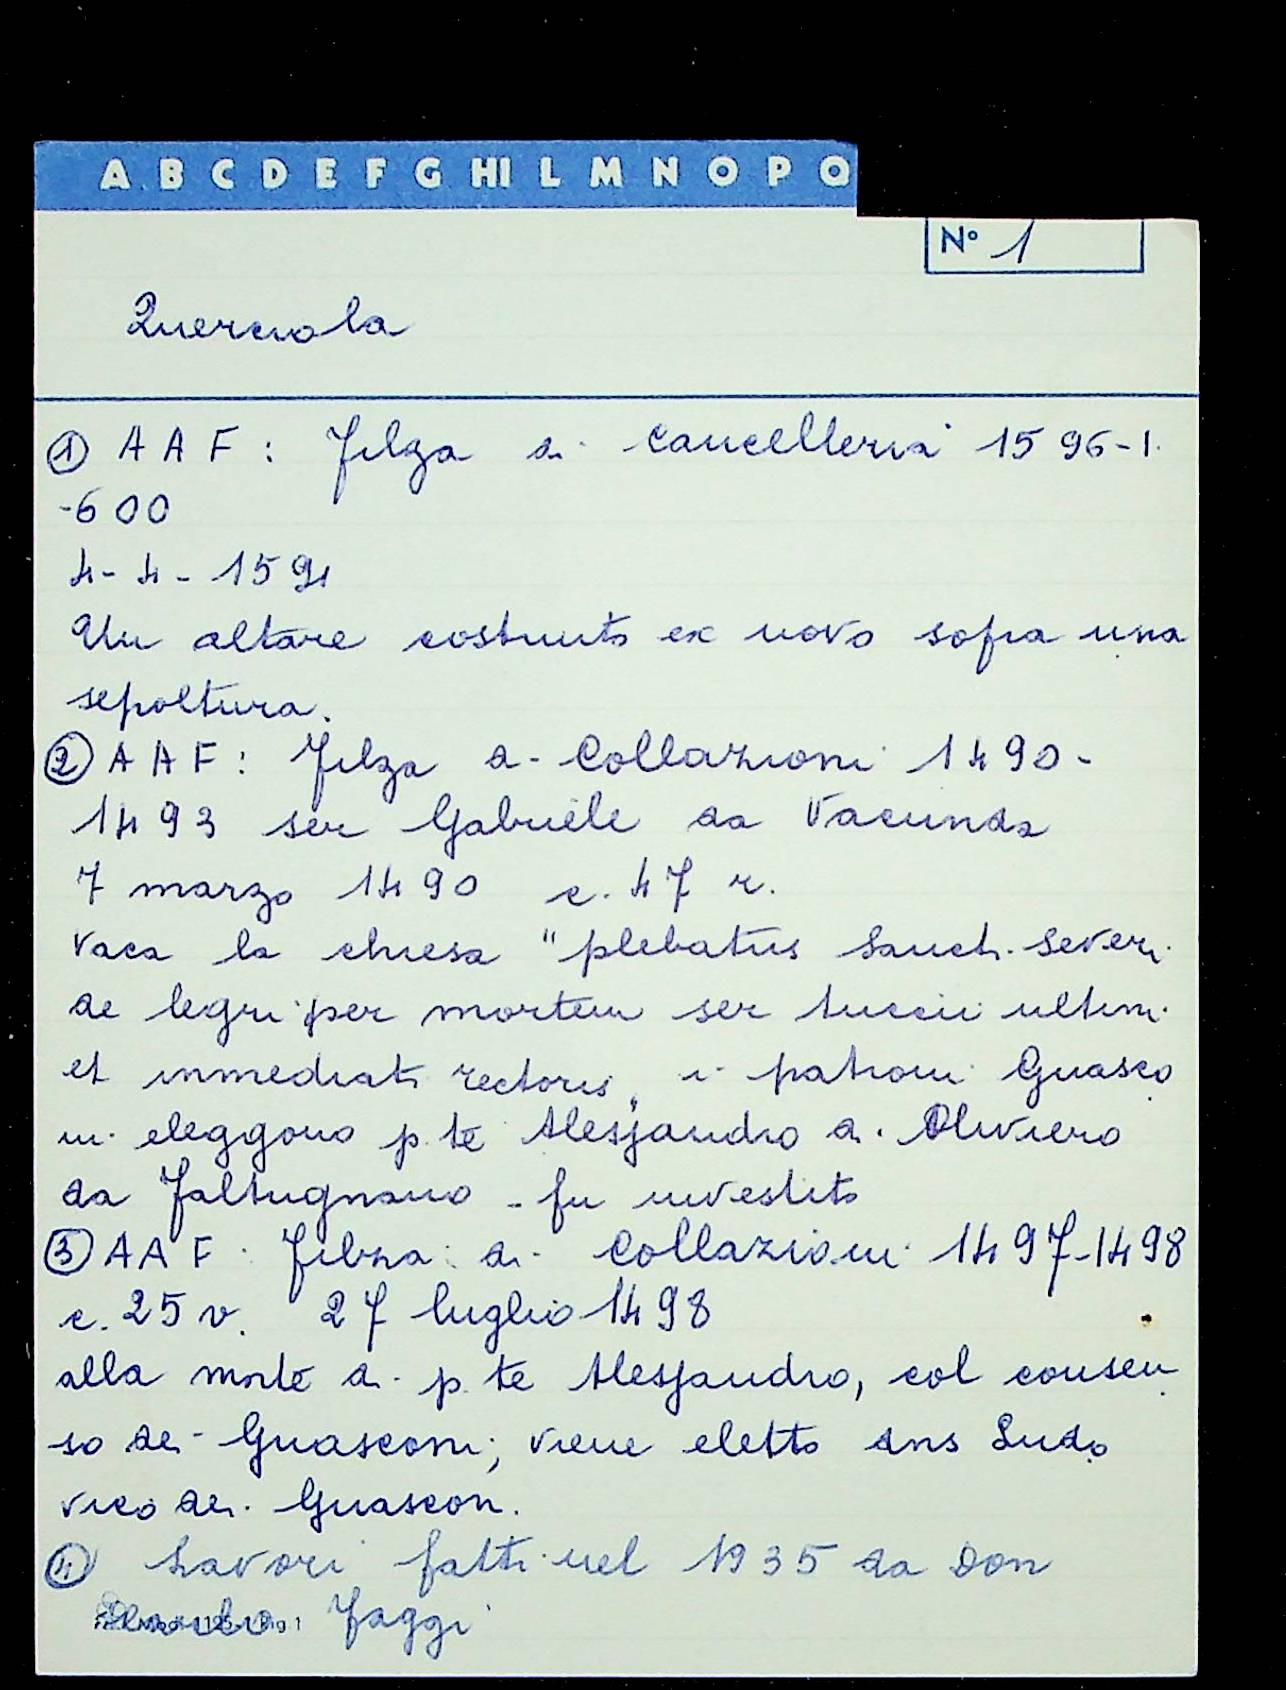 A B C D E F G HI L M N O P Q
N° 1
Querciola
① A A F : Filza di Cancelleria 1596-1.
-600
4-4-1591
Un altare costruito ex novo sopra una
sepoltura.
② A A F : Filza di Collazioni 1490-
1493 ser Gabriele da Vacunda
7 marzo 1490 c. 47 r.
Vaca la chiesa "plebatus Sancti Severi
de legri per mortem ser Luccii ultimi
et inmediati rectoris, i patroni Guasco
ni eleggono p. te Alessandro di Oliviero
da Faltugnano - fu investito
③ A A F : Filza: di Collazioni 1497-1498
c. 25 v. 27 luglio 1498
alla morte di p. te Alessandro, col consen
so dei Guasconi, viene eletto dns Ludo
vico dei Guascon.
④ Lavori fatti nel 1935 da Don
Faggi